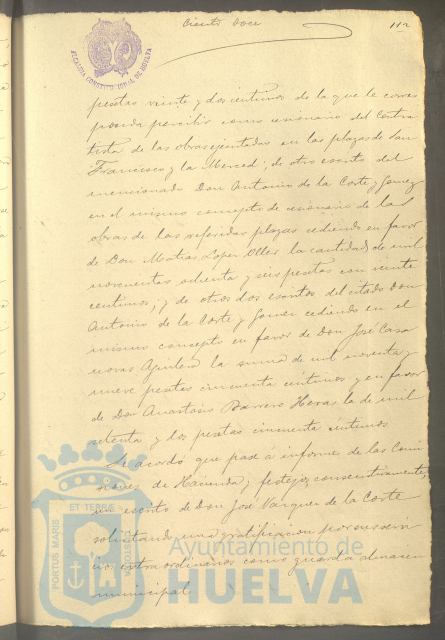 Ciento doce
112
ALCALDIA CONSTITUCIONAL DE HUELVA
pesetas veinte y dos centimos de la que le corres
ponda percibir como cesionario del Contra
tista de las obras ejecutadas en las plazas de San
Francisco y la Merced; de otro escrito del
mencionado Don Antonio de la Corte y Gomez
en el mismo concepto de cesionario de las
obras de las referidas plazas cediendo en favor
de Don Matias Lopez Oller la cantidad de mil
novecientas ochenta y seis pesetas con veinte
centimos; y de otros dos escritos del citado Don
Antonio de la Corte y Gomez cediendo en el
mismo concepto en favor de Don José Casa
novas Aguilera la suma de mil noventa y
nueve pesetas cincuenta céntimos y en favor
de Don Anastasio Barrero Heras la de mil
setenta y dos pesetas cincuenta centimos
Se acordó que pase á informe de las Comi
siones de Hacienda y festejos, consecutivamente,
un escrito de Don José Vazquez de la Corte
solicitando una gratificacion por sus servi
cios extraordinarios como guarda almacen
municipal.
PORTUS MARIS ET TERRÆ CUSTODIA
Ayuntamiento de
HUELVA